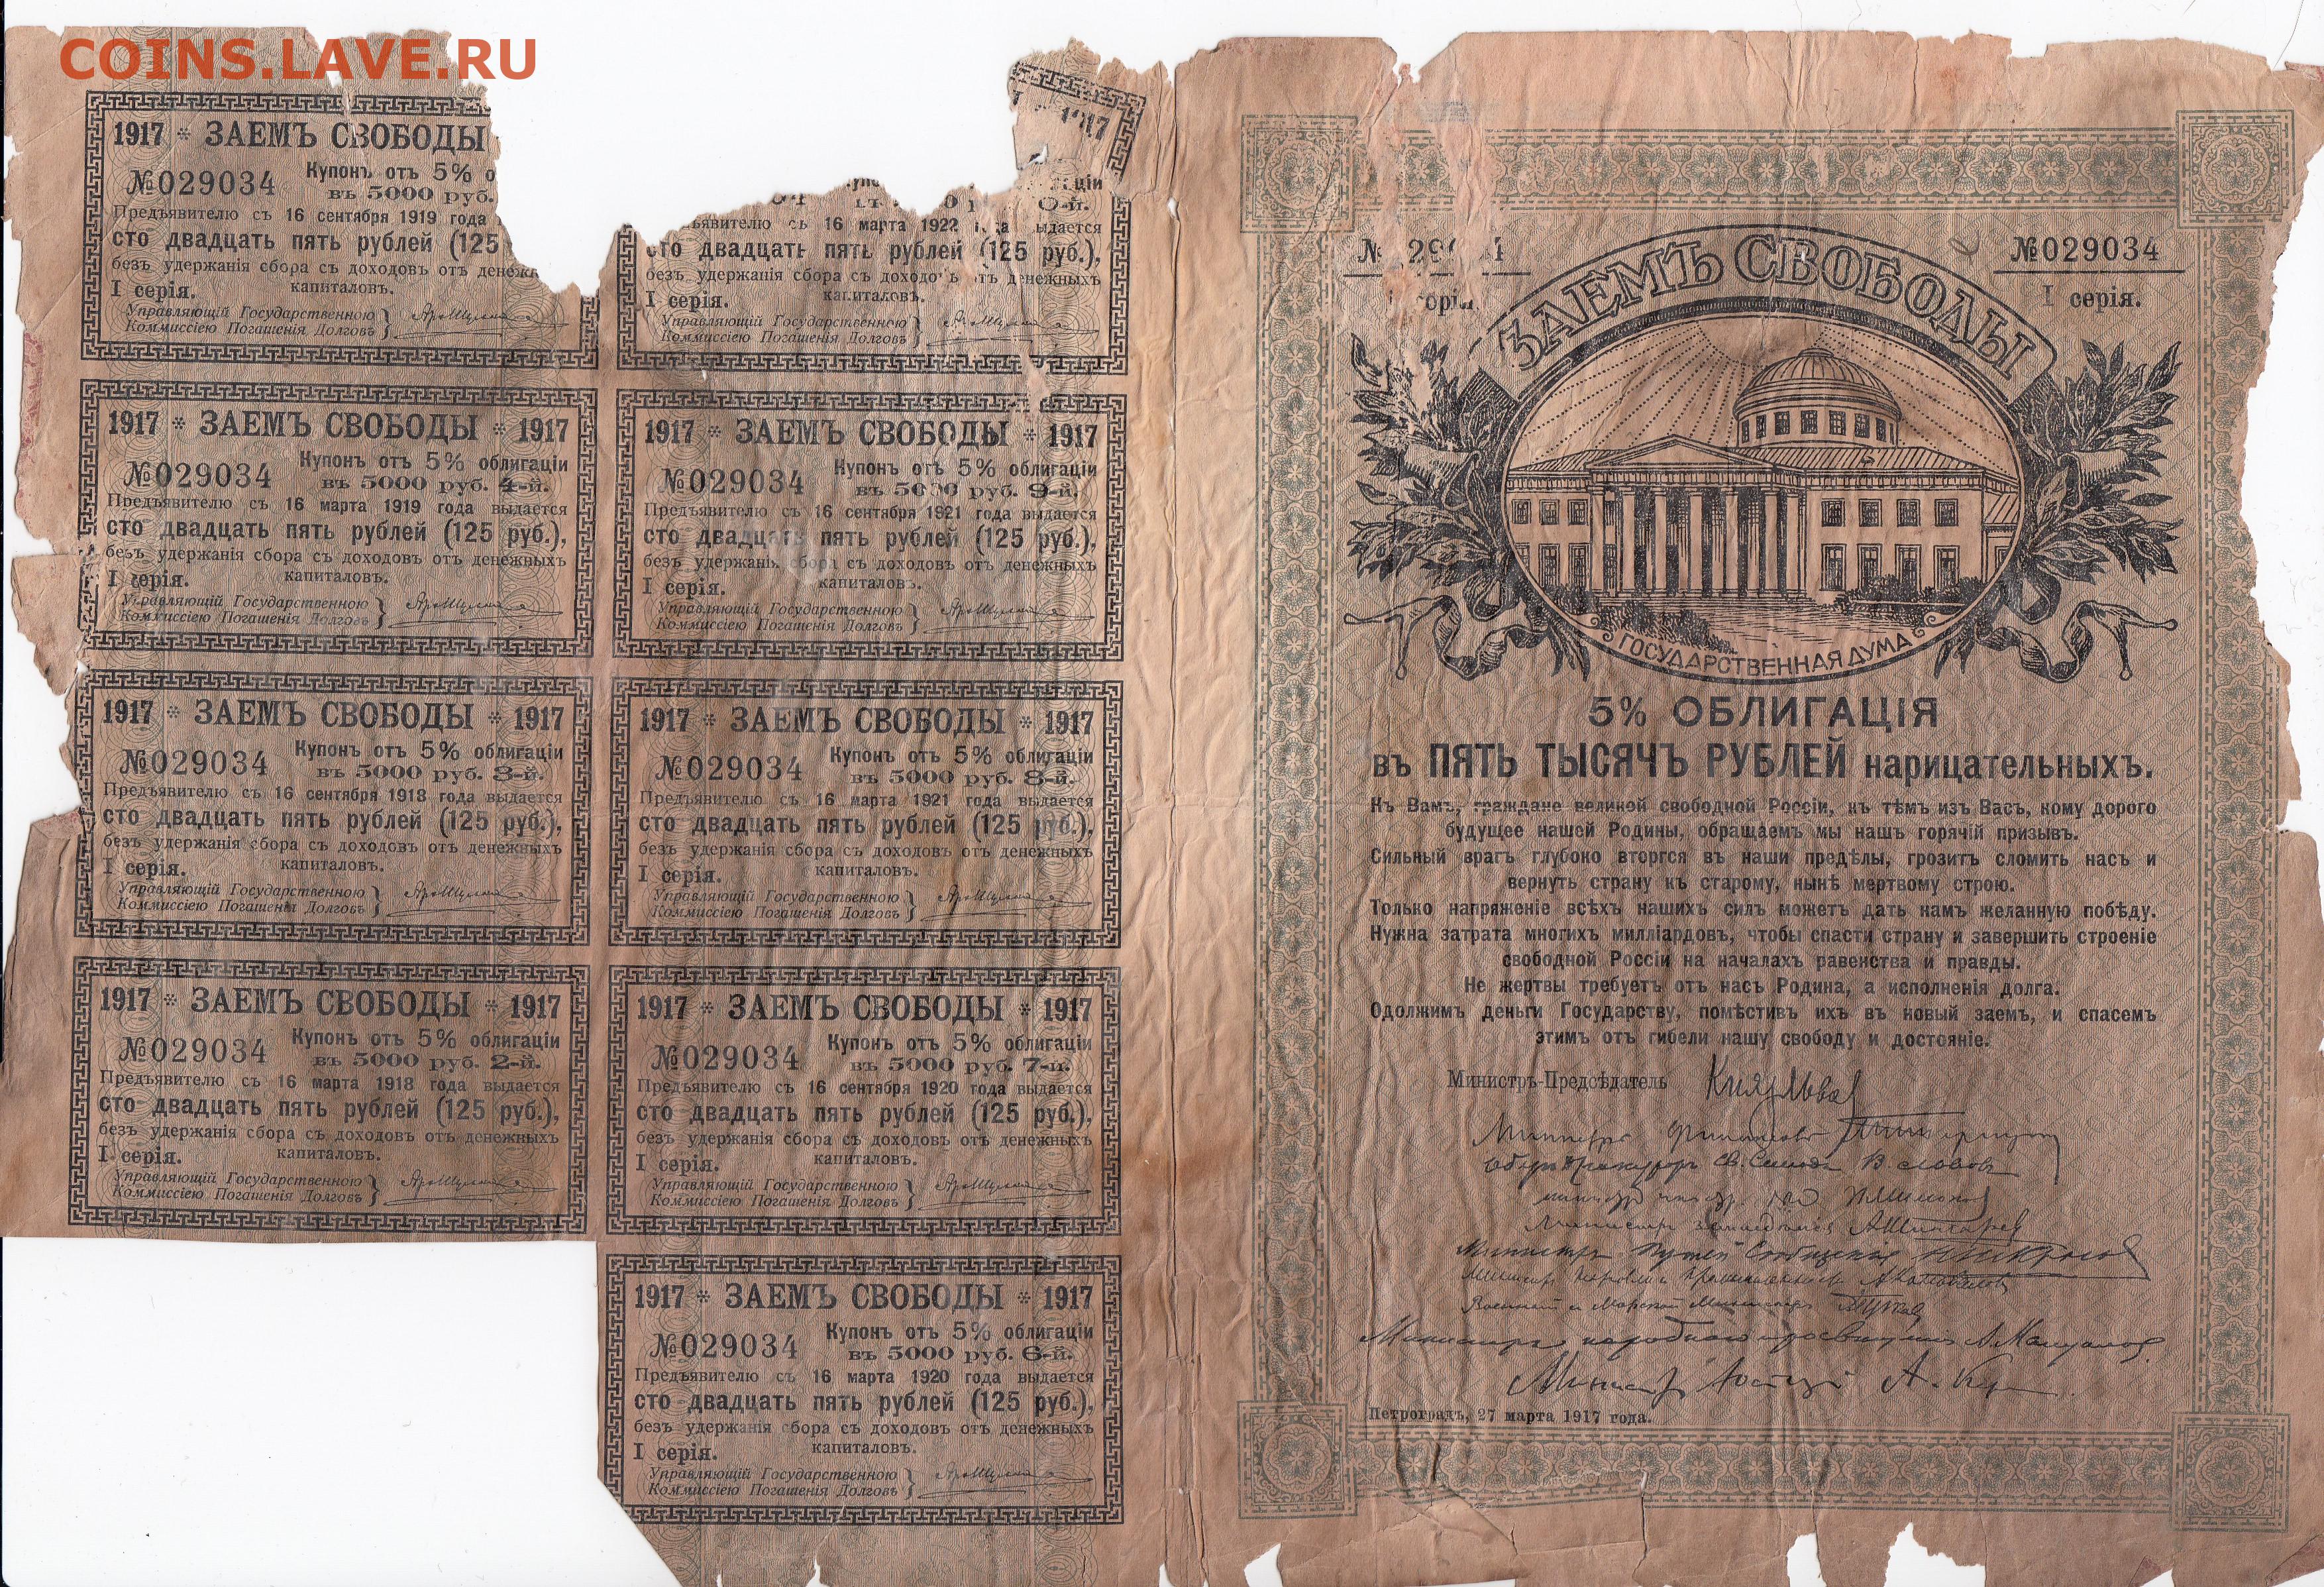 COINS.LAVE.RU
1917 * ЗАЕМЪ СВОБОДЫ
№029034
Купонъ отъ 5%
въ 5000 руб.
Предъявителю съ 16 сентября 1919 года
сто двадцать пять рублей (125
безъ удержанія сбора съ доходовъ отъ
капиталовъ.
I серія.
Управляющій Государственною
Коммиссіею Погашенія Долговъ
1917 * ЗАЕМЪ СВОБОДЫ * 1917
№029034
Купонъ отъ 5% облигаціи
въ 5000 руб. 4-й.
Предъявителю съ 16 марта 1919 года выдается
сто двадцать пять рублей (125 руб.),
безъ удержанія сбора съ доходовъ отъ денежныхъ
капиталовъ.
I серія.
Управляющій Государственною
Коммиссіею Погашенія Долговъ
1917 * ЗАЕМЪ СВОБОДЫ * 1917
№029034
Купонъ отъ 5% облигаціи
въ 5000 руб. 3-й.
Предъявителю съ 16 сентября 1918 года выдается
сто двадцать пять рублей (125 руб.),
безъ удержанія сбора съ доходовъ отъ денежныхъ
капиталовъ.
I серія.
Управляющій Государственною
Коммиссіею Погашенія Долговъ
1917 * ЗАЕМЪ СВОБОДЫ * 1917
№029034
Купонъ отъ 5% облигаціи
въ 5000 руб. 2-й.
Предъявителю съ 16 марта 1918 года выдается
сто двадцать пять рублей (125 руб.),
безъ удержанія сбора съ доходовъ отъ денежныхъ
капиталовъ.
I серія.
Управляющій Государственною
Коммиссіею Погашенія Долговъ
1917
съ 16 марта 1922
сто двадцать пять рублей (125 руб.),
безъ удержанія сбора съ отъ денежныхъ
капиталовъ.
I серія.
Управляющій Государственною
Коммиссіею Погашенія Долговъ
1917 * ЗАЕМЪ СВОБОДЫ * 1917
№029034
Купонъ отъ 5% облигаціи
въ 5000 руб. 9-й.
Предъявителю съ 16 сентября 1921 года выдается
сто двадцать пять рублей (125 руб.),
безъ удержанія сбора съ доходовъ отъ денежныхъ
капиталовъ.
I серія.
Управляющій Государственною
Коммиссіею Погашенія Долговъ
1917 * ЗАЕМЪ СВОБОДЫ * 1917
№029034
Купонъ отъ 5% облигаціи
въ 5000 руб. 8-й.
Предъявителю съ 16 марта 1921 года выдается
сто двадцать пять рублей (125 руб.),
безъ удержанія сбора съ доходовъ отъ денежныхъ
капиталовъ.
I серія.
Управляющій Государственною
Коммиссіею Погашенія Долговъ
1917 * ЗАЕМЪ СВОБОДЫ * 1917
№029034
Купонъ отъ 5% облигаціи
въ 5000 руб. 7-й.
Предъявителю съ 16 сентября 1920 года выдается
сто двадцать пять рублей (125 руб.),
безъ удержанія сбора съ доходовъ отъ денежныхъ
капиталовъ.
I серія.
Управляющій Государственною
Коммиссіею Погашенія Долговъ
1917 * ЗАЕМЪ СВОБОДЫ * 1917
№029034
Купонъ отъ 5% облигаціи
въ 5000 руб. 6-й.
Предъявителю съ 16 марта 1920 года выдается
сто двадцать пять рублей (125 руб.),
безъ удержанія сбора съ доходовъ отъ денежныхъ
капиталовъ.
I серія.
Управляющій Государственною
Коммиссіею Погашенія Долговъ
№029034
I серія.
ЗАЕМЪ СВОБОДЫ
ГОСУДАРСТВЕННАЯ ДУМА
5% ОБЛИГАЦІЯ
въ ПЯТЬ ТЫСЯЧЪ РУБЛЕЙ нарицательныхъ.
Къ Вамъ, граждане великой свободной Россіи, къ тѣмъ изъ Васъ, кому дорого
будущее нашей Родины, обращаемъ мы нашъ горячій призывъ.
Сильный врагъ глубоко вторгся въ наши предѣлы, грозитъ сломить насъ и
вернуть страну къ старому, нынѣ мертвому строю.
Только напряженіе всѣхъ нашихъ силъ можетъ дать намъ желанную побѣду.
Нужна затрата многихъ милліардовъ, чтобы спасти страну и завершить строеніе
свободной Россіи на началахъ равенства и правды.
Не жертвы требуетъ отъ насъ Родина, а исполненія долга.
Одолжимъ деньги Государству, помѣстивъ ихъ въ новый заемъ, и спасемъ
этимъ отъ гибели нашу свободу и достояніе.
Министръ-Предсѣдатель Князь Львов
Министръ Финансовъ
Оберъ Прокуроръ Св. Синода В. Львов
Министръ Земледѣлія А Шингарев
Министръ Путей Сообщенія
Министр торговли и промышленности А Коновалов
Военный и Морской Министръ
Министръ народнаго просвещенія А. Мануйлов.
Министръ Юстиціи А. Кер
Петроградъ, 27 марта 1917 года.